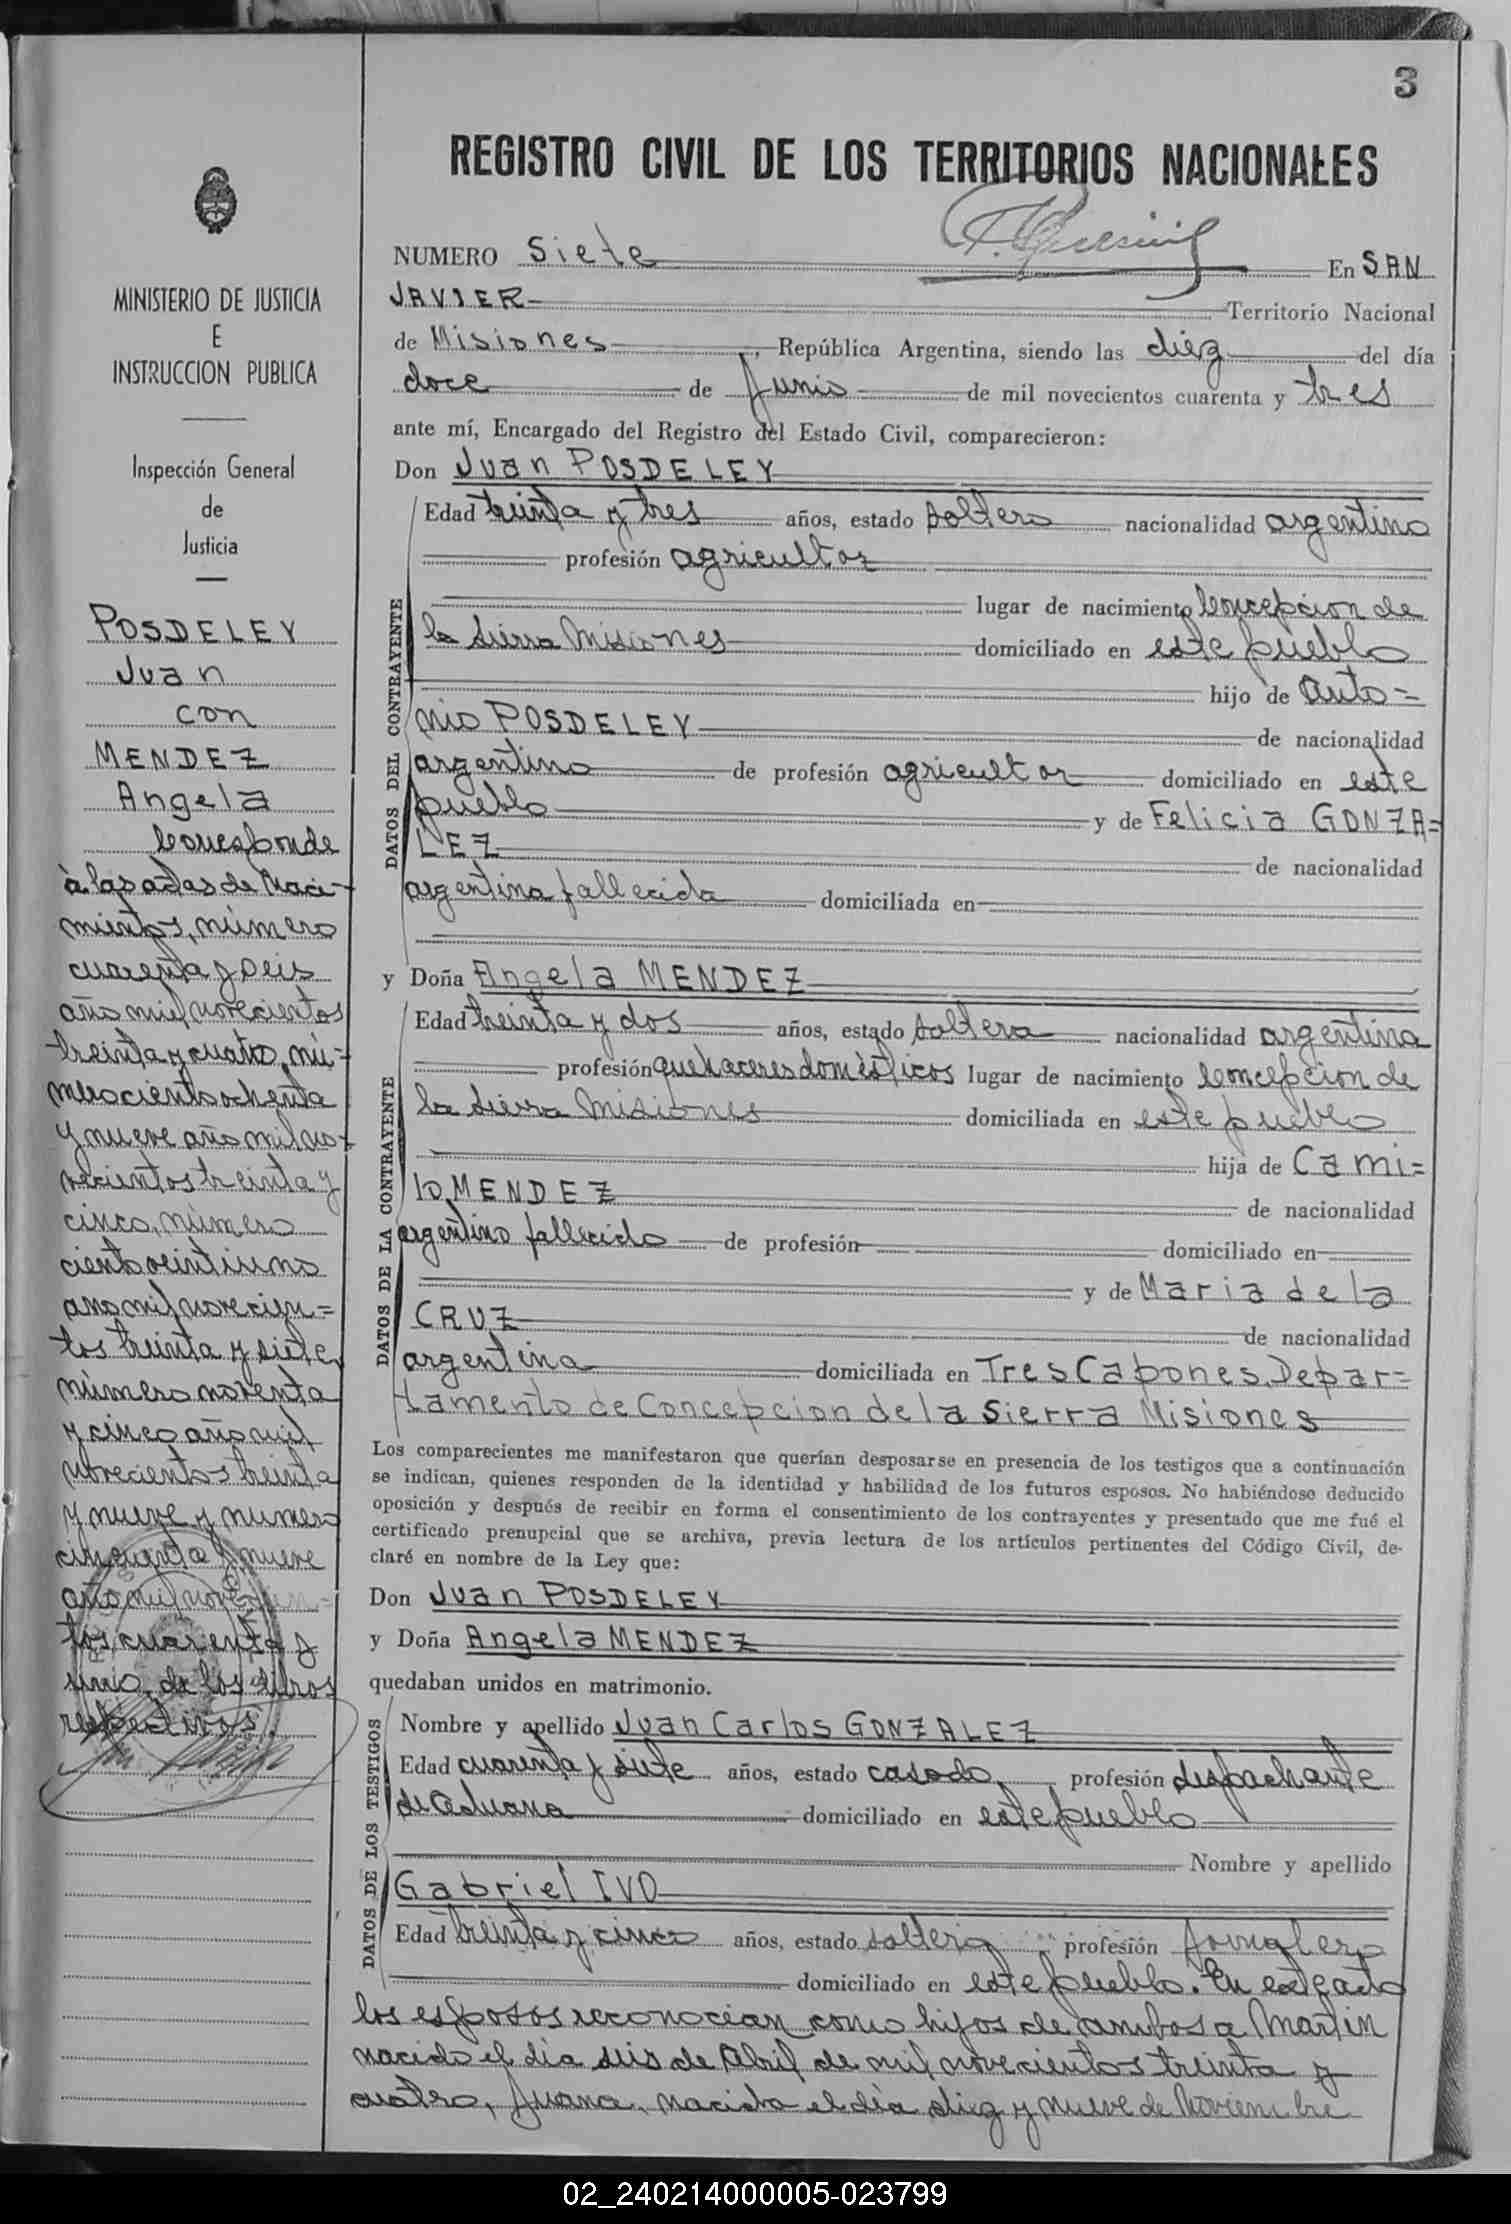 3
REGISTRO CIVIL DE LOS TERRITORIOS NACIONALES
NUMERO Siete En SAN
JAVIER Territorio Nacional
de Misiones, República Argentina, siendo las diez del día
doce de Junio de mil novecientos cuarenta y tres
ante mí, Encargado del Registro del Estado Civil, comparecieron:
Don Juan POSDELEY
DATOS DEL CONTRAYENTE
Edad treinta y tres años, estado soltero nacionalidad argentino
profesión agricultor
lugar de nacimiento Concepcion de
la Sierra Misiones domiciliado en este pueblo
hijo de Anto=
nio POSDELEY de nacionalidad
argentino de profesión agricultor domiciliado en este
pueblo y de Felicia GONZA=
LEZ de nacionalidad
argentina fallecida domiciliada en
y Doña Angela MENDEZ
DATOS DE LA CONTRAYENTE
Edad treinta y dos años, estado soltera nacionalidad argentina
profesión quehaceres domésticos lugar de nacimiento Concepcion de
la Sierra Misiones domiciliada en este pueblo
hija de Cami=
lo MENDEZ de nacionalidad
argentino fallecido de profesión domiciliado en
y de Maria de la
CRUZ de nacionalidad
argentina domiciliada en Tres Capones, Depar=
tamento de Concepcion de la Sierra Misiones
Los comparecientes me manifestaron que querían desposarse en presencia de los testigos que a continuación
se indican, quienes responden de la identidad y habilidad de los futuros esposos. No habiéndose deducido
oposición y después de recibir en forma el consentimiento de los contrayentes y presentado que me fué el
certificado prenupcial que se archiva, previa lectura de los artículos pertinentes del Código Civil, de-
claré en nombre de la Ley que:
Don Juan POSDELEY
y Doña Angela MENDEZ
quedaban unidos en matrimonio.
DATOS DE LOS TESTIGOS
Nombre y apellido Juan Carlos GONZALEZ
Edad cuarenta y siete años, estado casado, profesión despachante
de Aduana domiciliado en este pueblo
Nombre y apellido
Gabriel IVO
Edad treinta y cinco años, estado soltero profesión jornalero
domiciliado en este pueblo. En este acto
los esposos reconocian como hijos de ambos a Martin
nacido el dia seis de Abril de mil novecientos treinta y
cuatro, Juana, nacida el dia diez y nueve de Noviembre
MINISTERIO DE JUSTICIA
E
INSTRUCCION PUBLICA
Inspección General
de
Justicia
POSDELEY
Juan
con
MENDEZ
Angela
Corresponde
à las actas de Naci-
mientos, número
cuarenta y seis
año mil novecientos
treinta y cuatro, nú-
mero ciento ochenta
y nueve año mil no-
vecientos treinta y
cinco, número
ciento veintiuno
año mil novecien=
tos treinta y siete,
número noventa
y cinco año mil
novecientos treinta
y nueve y numero
cincuenta y nueve
año mil novecien=
tos cuarenta y
uno, de los libros
respectivos.
02_240214000005-023799